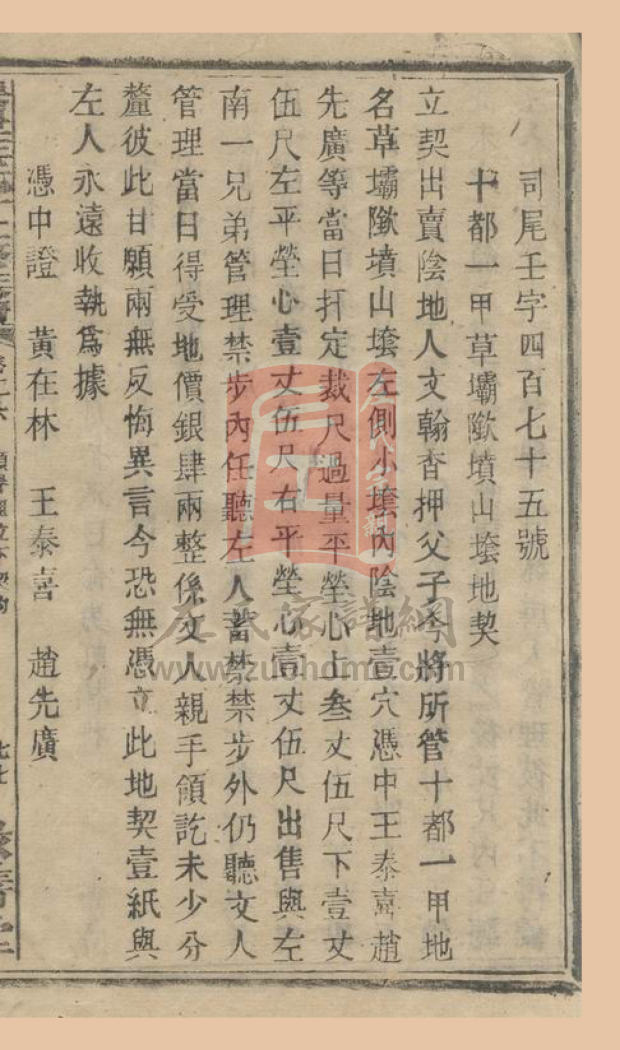 司尾壬字四百七十五號
十都一甲草壩墳山塆地契
立契出賣陰地人文翰香押父子今將所管十都一甲地
名草壩墳山塆左側小塆內陰地壹穴憑中王泰喜趙
先廣等當日扦定裁尺過量平塋心上叁丈伍尺下壹丈
伍尺左平塋心壹丈伍尺右平塋心壹丈伍尺出售與左
南一兄弟管理禁步內任聽左人蓄禁禁步外仍聽文人
管理當日得受地價銀肆兩整係文人親手領訖未少分
釐彼此甘願兩無反悔異言今恐無憑立此地契壹紙與
左人永遠收執爲據
憑中證 黃在林 王泰喜 趙先廣
左氏家譜網
www.zuohome.com